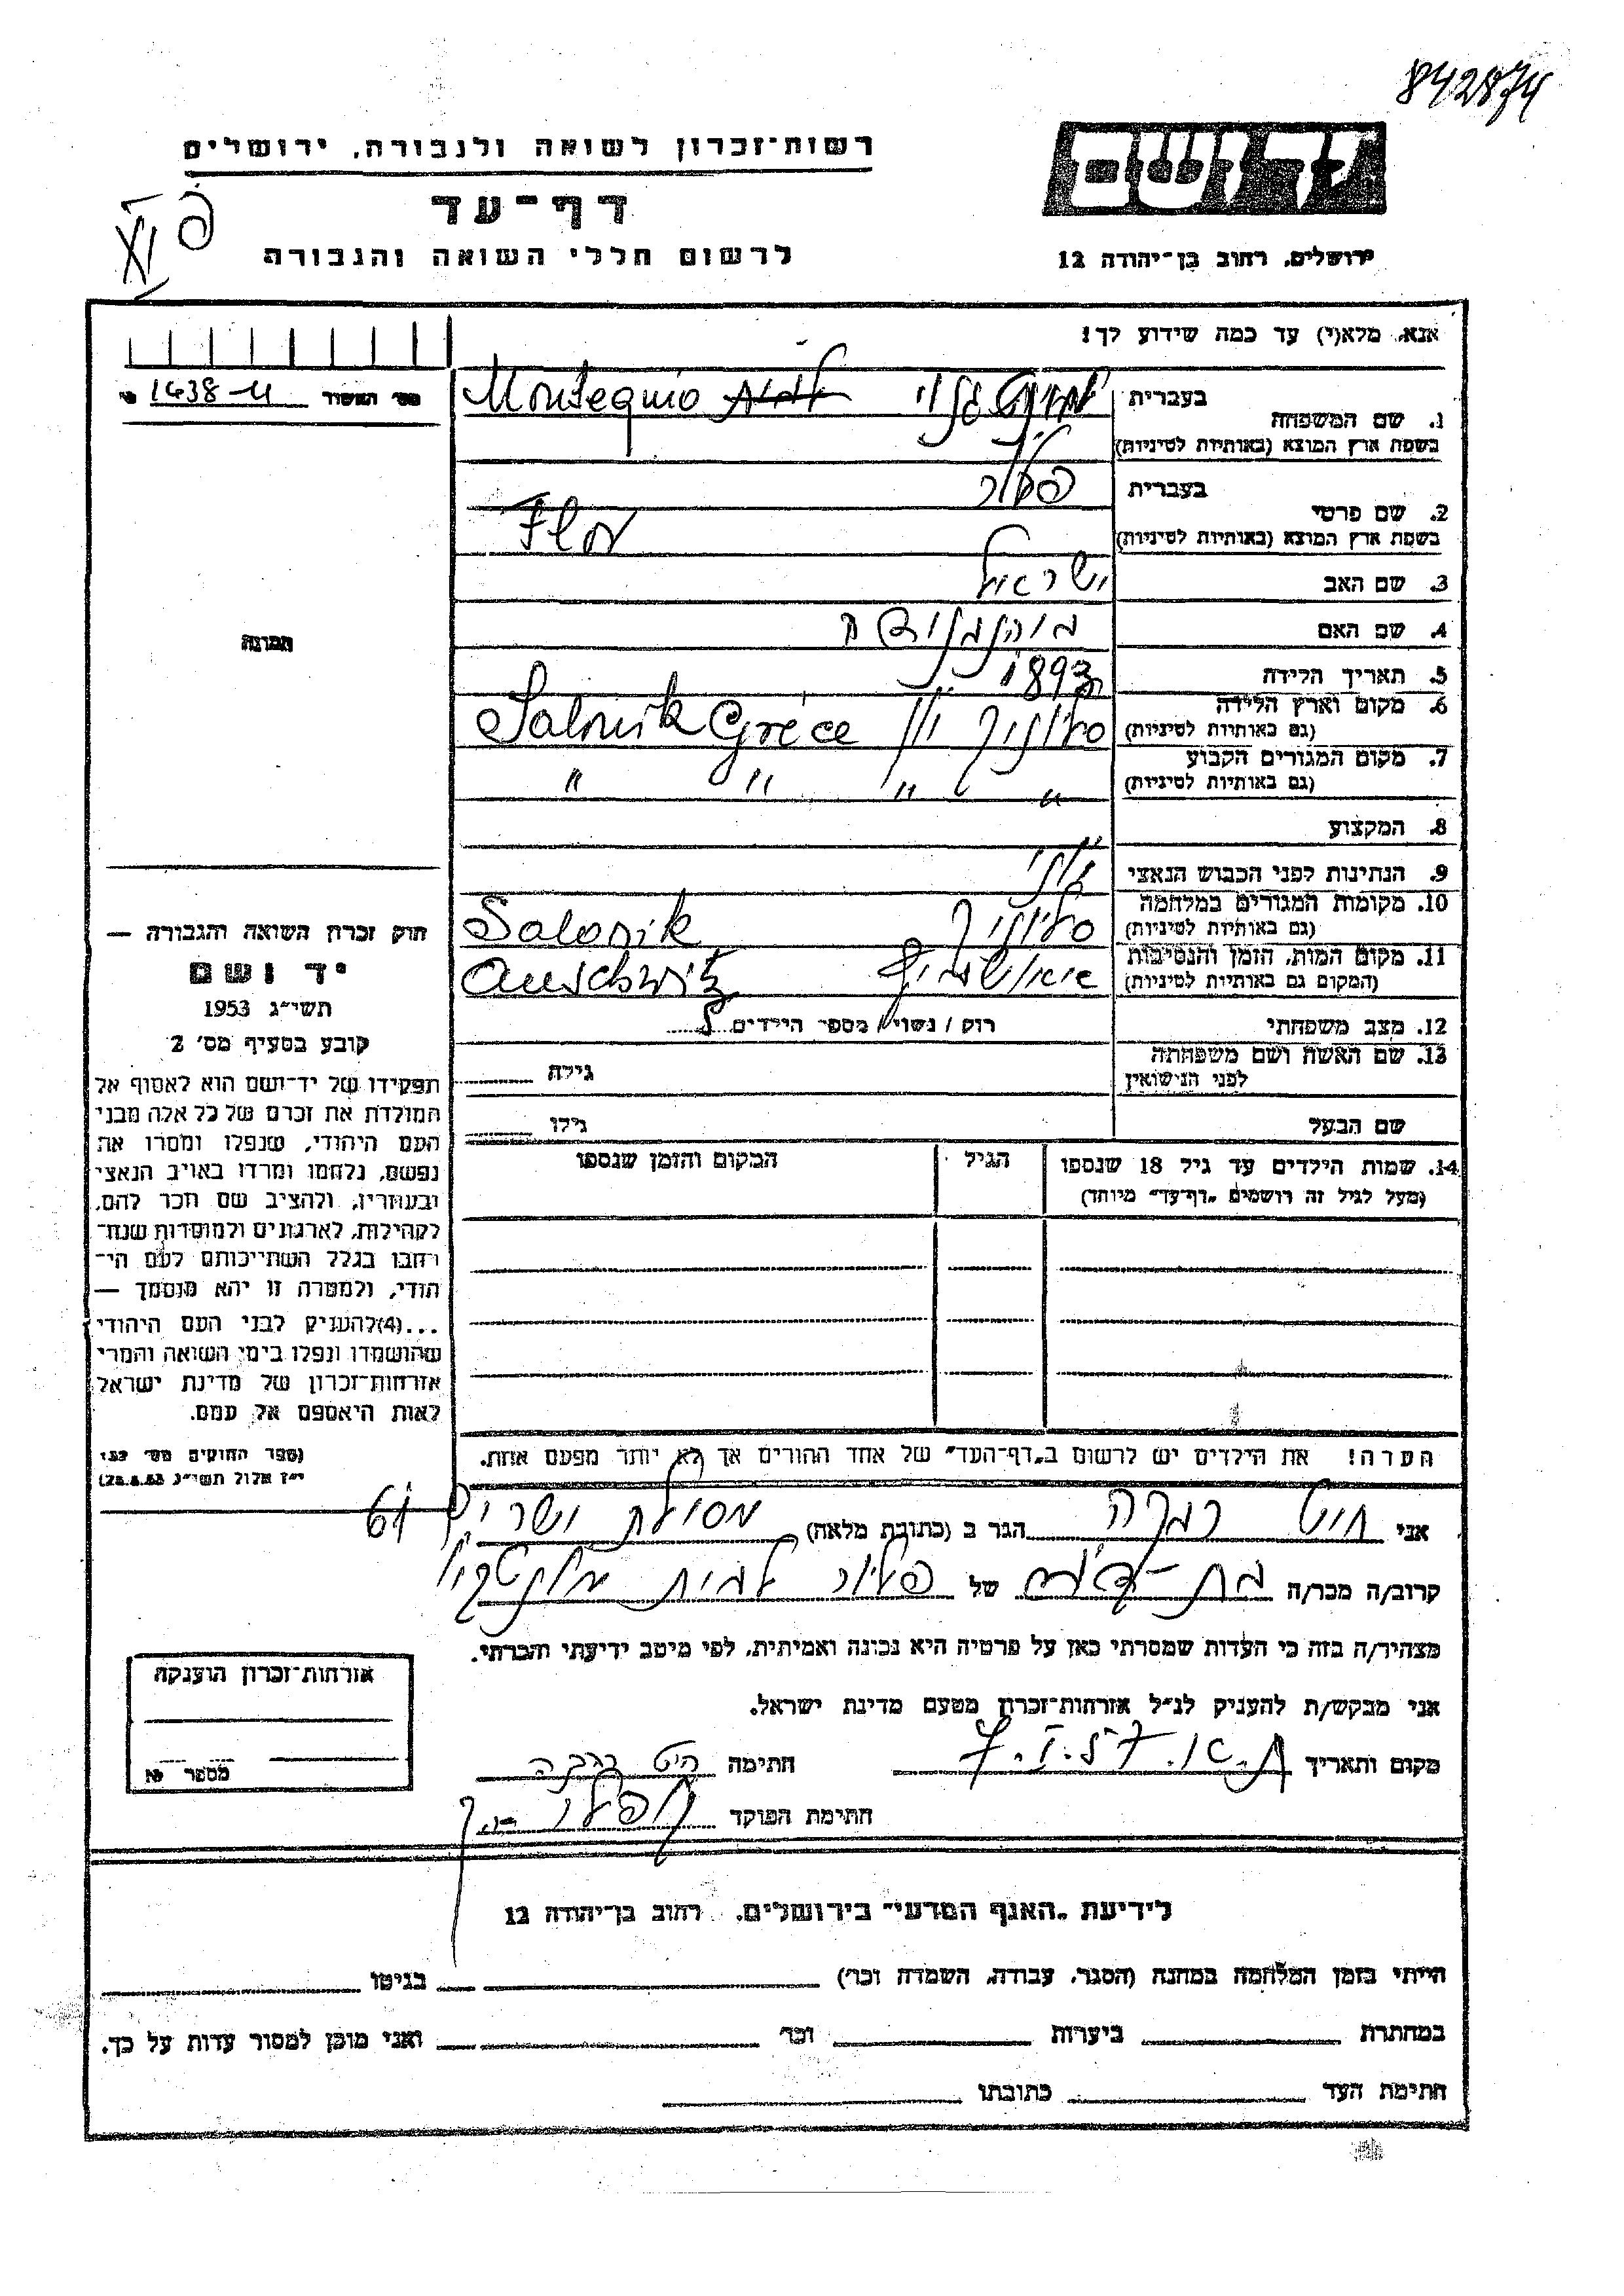 842874
רשות־זכרון לשואה ולגבורה, ירושלים
יד ושם
דף־עד
פ
לרשום חללי השואה והגבורה
ירושלים, רחוב בן־יהודה 12
אנא, מלא(י) עד כמה שידוע לך!
1. שם המשפחה
בעברית
בשפת ארץ המוצא (באותיות לטיניות)
Montequio
מס׳ 1438-
2. שם פרטי
בעברית
פלור
בשפת ארץ המוצא (באותיות לטיניות)
Flor
3. שם האב
ישראל
4. שם האם
5. תאריך הלידה
1893
6. מקום וארץ הלידה
(גם באותיות לטיניות)
סלוניק יון Salonik Grèce
7. מקום המגורים הקבוע
(גם באותיות לטיניות)
" " " "
8. המקצוע
9. הנתינות לפני הכבוש הנאצי
יוני
10. מקומות המגורים במלחמה
(גם באותיות לטיניות)
סלוניק Salonik
11. מקום המות, הזמן והנסיבות
(המקום גם באותיות לטיניות)
Auschwitz
12. מצב משפחתי
רוק / נשוי / מספר הילדים
13. שם האשה ושם משפחתה
לפני הנישואין
גילה
שם הבעל
גילו
14. שמות הילדים עד גיל 18 שנספו
(מעל לגיל זה רושמים „דף־עד״ מיוחד)
הגיל
המקום והזמן שנספו
הערה! את הילדים יש לרשום ב„דף־העד״ של אחד ההורים אך לא יותר מפעם אחת.
תמונה
חוק זכרון השואה והגבורה —
יד ושם
תשי״ג 1953
קובע בסעיף מס׳ 2
תפקידו של יד־ושם הוא לאסוף אל
המולדת את זכרם של כל אלה מבני
העם היהודי, שנפלו ומסרו את
נפשם, נלחמו ומרדו באויב הנאצי
ובעוזריו, ולהציב שם וזכר להם,
לקהילות, לארגונים ולמוסדות שנח־
רבו בגלל השתייכותם לעם הי־
הודי, ולמטרה זו יהא מוסמך —
...(4) להעניק לבני העם היהודי
שהושמדו ונפלו בימי השואה והמרי
אזרחות־זכרון של מדינת ישראל
לאות היאספם אל עמם.
(ספר החוקים מס׳ 132
י״ז אלול תשי״ג 28.8.53)
אני חיט רבקה הגר ב (כתובת מלאה) 61
קרוב/ה מכר/ה בת־דודה של פלור לבית
מצהיר/ה בזה כי העדות שמסרתי כאן על פרטיה היא נכונה ואמיתית, לפי מיטב ידיעתי והכרתי.
אני מבקש/ת להעניק לנ״ל אזרחות־זכרון מטעם מדינת ישראל.
מקום ותאריך
חתימה חיט רבקה
חתימת הפוקד
אזרחות־זכרון הוענקה
מספר
לידיעת „האגף המדעי״ בירושלים, רחוב בן־יהודה 12
הייתי בזמן המלחמה במחנה (הסגר, עבודה, השמדה וכו׳)
בגיטו
במחתרת
ביערות
וכו׳
ואני מוכן למסור עדות על כך.
חתימת העד
כתובתו